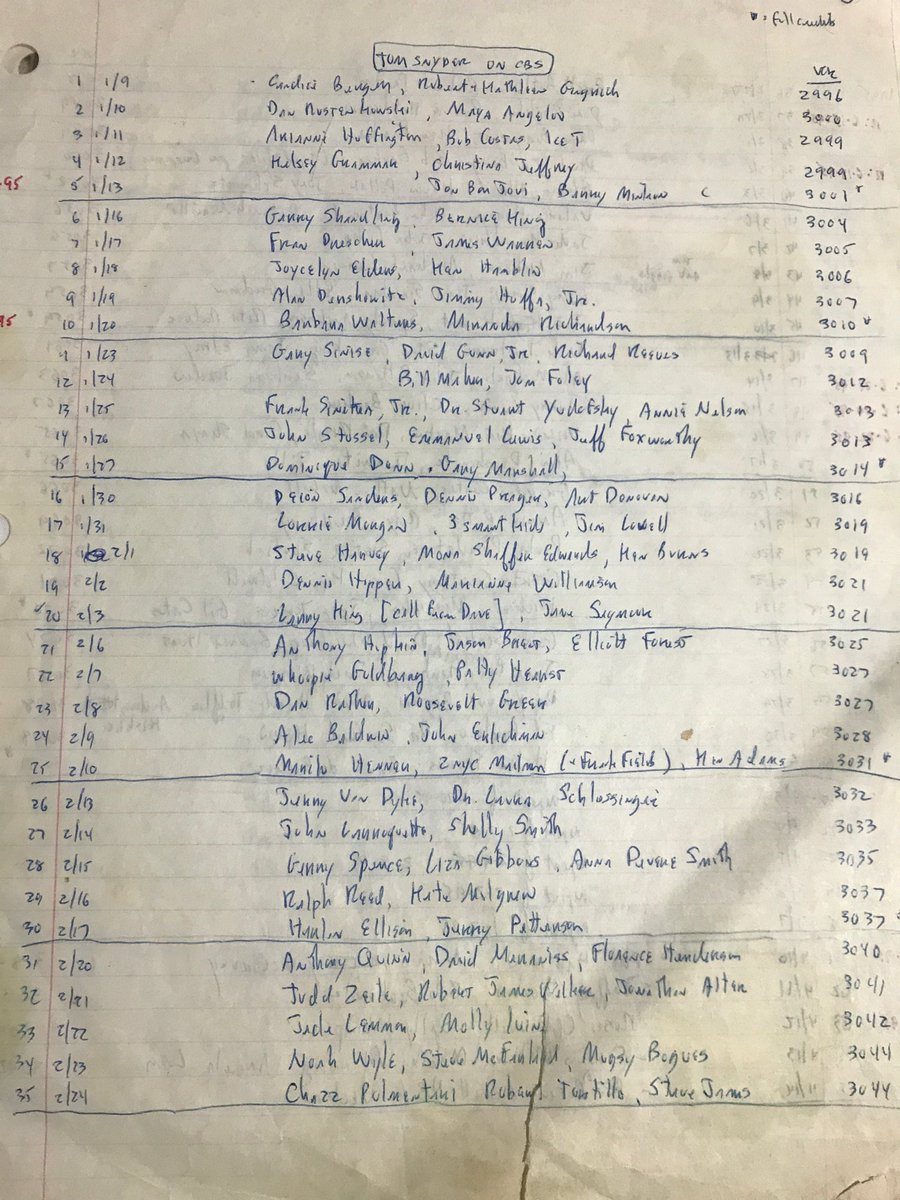 * = full credits
TOM SNYDER ON CBS
VCR
1 1/9 Candice Bergen, Robert + Kathleen Gingrich 2996
2 1/10 Dan Rostenkowski, Maya Angelou 3000
3 1/11 Arianne Huffington, Bob Costas, Ice T 2999
4 1/12 Kelsey Grammar, Christina Jeffrey 2999
95 5 1/13 Jon Bon Jovi, Barry Manilow C 3001 *
6 1/16 Garry Shandling, Bernice King 3004
7 1/17 Fran Drescher, James Warren 3005
8 1/18 Joycelyn Elders, Ken Hamblin 3006
9 1/19 Alan Dershowitz, Jimmy Hoffa, Jr. 3007
95 10 1/20 Barbara Walters, Miranda Richardson 3010 *
11 1/23 Gary Sinise, David Gunn, Jr., Richard Reeves 3009
12 1/24 Bill Maher, Tom Foley 3012
13 1/25 Frank Sinatra, Jr., Dr. Stuart Yudofsky Annie Nelson 3013
14 1/26 John Stossel, Emmanuel Lewis, Jeff Foxworthy 3013
15 1/27 Dominique Dunn, Gary Marshall, 3014 *
16 1/30 Deion Sanders, Dennis Prager, Art Donovan 3016
17 1/31 Lorrie Morgan, 3 smart kids, Jim Lovell 3019
18 2/1 Steve Harvey, Mona Shaffer Edwards, Ken Burns 3019
19 2/2 Dennis Hopper, Marianne Williamson 3021
20 2/3 Larry King [call from Dave], Jane Seymour 3021
21 2/6 Anthony Hopkin, Jason Bzest, Elliott Forest 3025
22 2/7 Whoopie Goldberg, Patty Hearst 3027
23 2/8 Dan Rather, Roosevelt Greer 3027
24 2/9 Alec Baldwin, John Erlichman 3028
25 2/10 Marilu Henner, 2 NYC Mailmen (+ Frank Field), Ken Adams 3031 *
26 2/13 Jerry Van Dyke, Dr. Laura Schlessinger 3032
27 2/14 John Larroquette, Shelly Smith 3033
28 2/15 Gerry Spence, Liza Gibbons, Anna Devere Smith 3035
29 2/16 Ralph Reed, Kate Mulgrew 3037
30 2/17 Harlan Ellison, Jenny Patterson 3037
31 2/20 Anthony Quinn, David Maraniss, Florence Henderson 3040
32 2/21 Todd Zeile, Robert James Waller, Jonathan Alter 3041
33 2/22 Jack Lemmon, Molly Ivins 3042
34 2/23 Noah Wyle, Steve McFarland, Mugsy Bogues 3044
35 2/24 Chazz Palmentari Robert Townsend, Steve James 3044